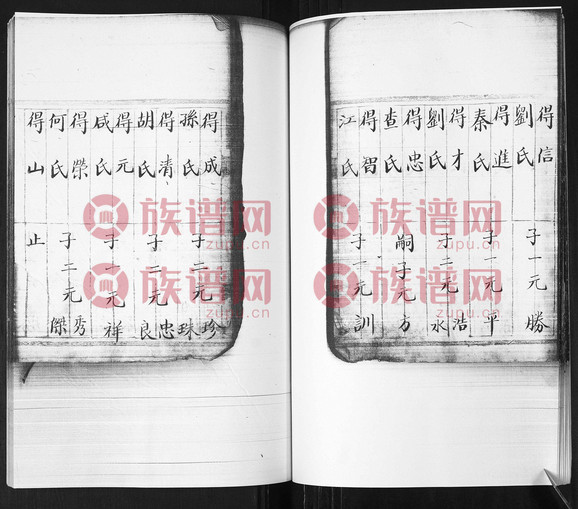 得信 劉氏
子一元勝
得進 秦氏
子一元平
得才 劉氏
子二元浩 永
得忠 查氏
嗣子元方
得智 江氏
子一元訓
得成 孫氏
子二元珍 珠
得清 胡氏
子二元忠 良
得元 咸氏
子一元祥
得榮 何氏
子二元秀 傑
得山
止
族谱网 zupu.cn
族谱网 zupu.cn
族谱网 zupu.cn
族谱网 zupu.cn